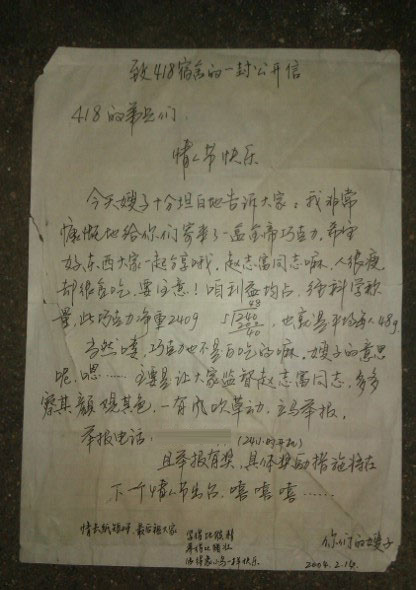 致418宿舍的一封公开信
418的弟兄们
情人节快乐
今天嫂子十分坦白地告诉大家：我非常
慷慨地给你们寄来了一盒金帝巧克力，希望
好东西大家一起分享哦，赵志富同志嘛，人很瘦
却很贪吃，要注意！咱利益均占，经科学称
量，此巧克力净重240g 5)240 48 40 ，也就是平均每人48g
当然喽，巧克力也不是白吃的嘛，嫂子的意思
呢，嗯……主要是让大家监督赵志富同志，多多
察其颜观其色，一有风吹草动，立马举报，
举报电话： (24小时开机)
且举报有奖，具体奖励措施将在
下一个情人节出台，嘻嘻嘻……
最后祝大家
一样快乐
你们的嫂子
2004.2.14